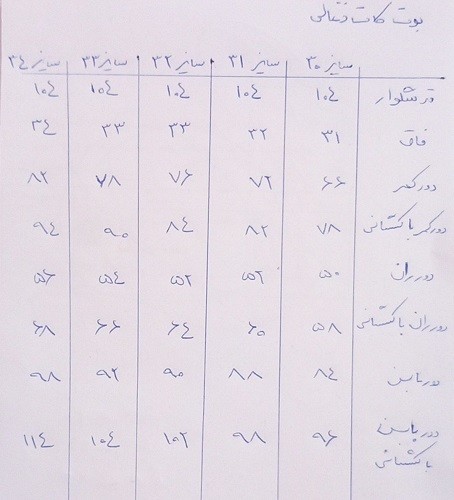 بوت کات ذغالی
سایز ۳۰ سایز ۳۱ سایز ۳۲ سایز ۳۳ سایز ۳۴
قد شلوار ۱۰۴ ۱۰۴ ۱۰۴ ۱۰۴ ۱۰۴
فاق ۳۱ ۳۲ ۳۳ ۳۳ ۳۴
دور کمر ۶۶ ۷۲ ۷۶ ۷۸ ۸۲
دور کمر با کشسانی ۷۸ ۸۲ ۸۴ ۹۰ ۹۴
دور ران ۵۰ ۵۲ ۵۲ ۵۴ ۵۶
دور ران با کشسانی ۵۸ ۶۰ ۶۴ ۶۶ ۶۸
دور باسن ۸۴ ۸۸ ۹۰ ۹۲ ۹۸
دور باسن ۹۶ ۹۸ ۱۰۲ ۱۰۴ ۱۱۴
با کشسانی